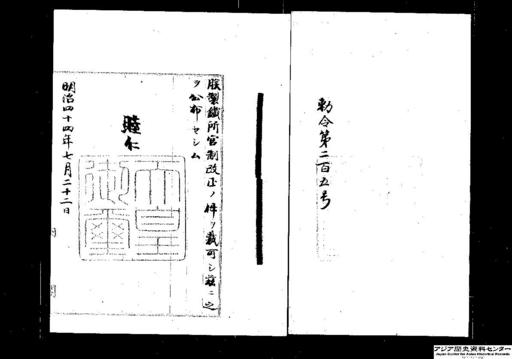 勅令第二百五号
朕製鐵所官制改正ノ件ヲ裁可シ茲ニ之
ヲ公布セシム
睦仁
天皇御璽
明治四十四年七月二十二日
内閣
アジア歴史資料センター
Japan Center for Asian Historical Records